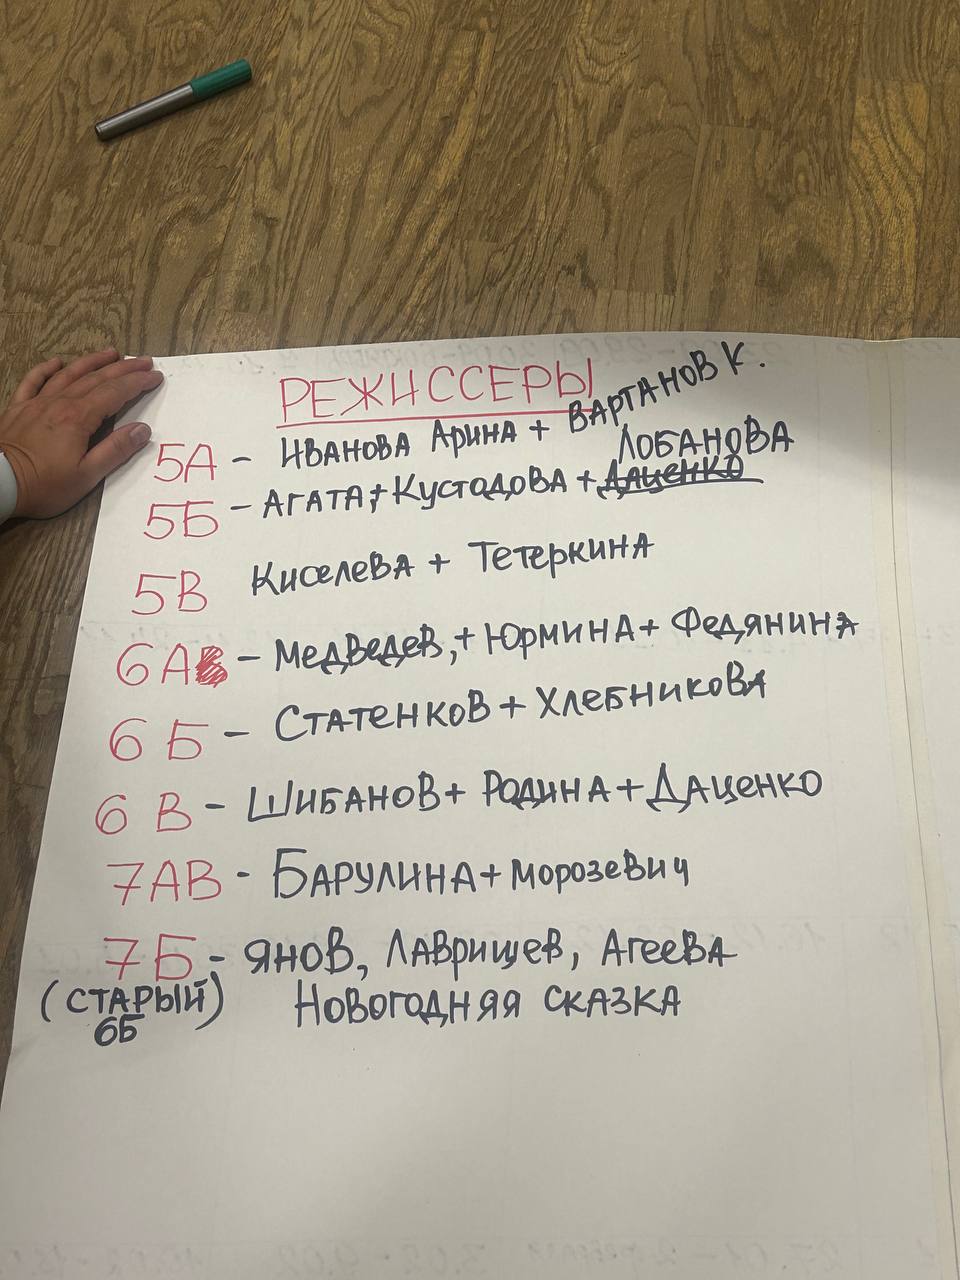 РЕЖИССЕРЫ
5А - ИВАНОВА АРИНА + ВАРТАНОВ К.
ЛОБАНОВА
5Б - АГАТА, + КУСТОДОВА + ДАЦЕНКО
5В КИСЕЛЕВА + ТЕТЕРКИНА
6А - МЕДВЕДЕВ, + ЮРМИНА + ФЕДЯНИНА
6 Б - СТАТЕНКОВ + ХЛЕБНИКОВА
6 В - ШИБАНОВ + РОДИНА + ДАЦЕНКО
7АВ - БАРУЛИНА + МОРОЗЕВИЧ
7Б - ЯНОВ, ЛАВРИЩЕВ, АГЕЕВА
(СТАРЫЙ) НОВОГОДНЯЯ СКАЗКА
6Б